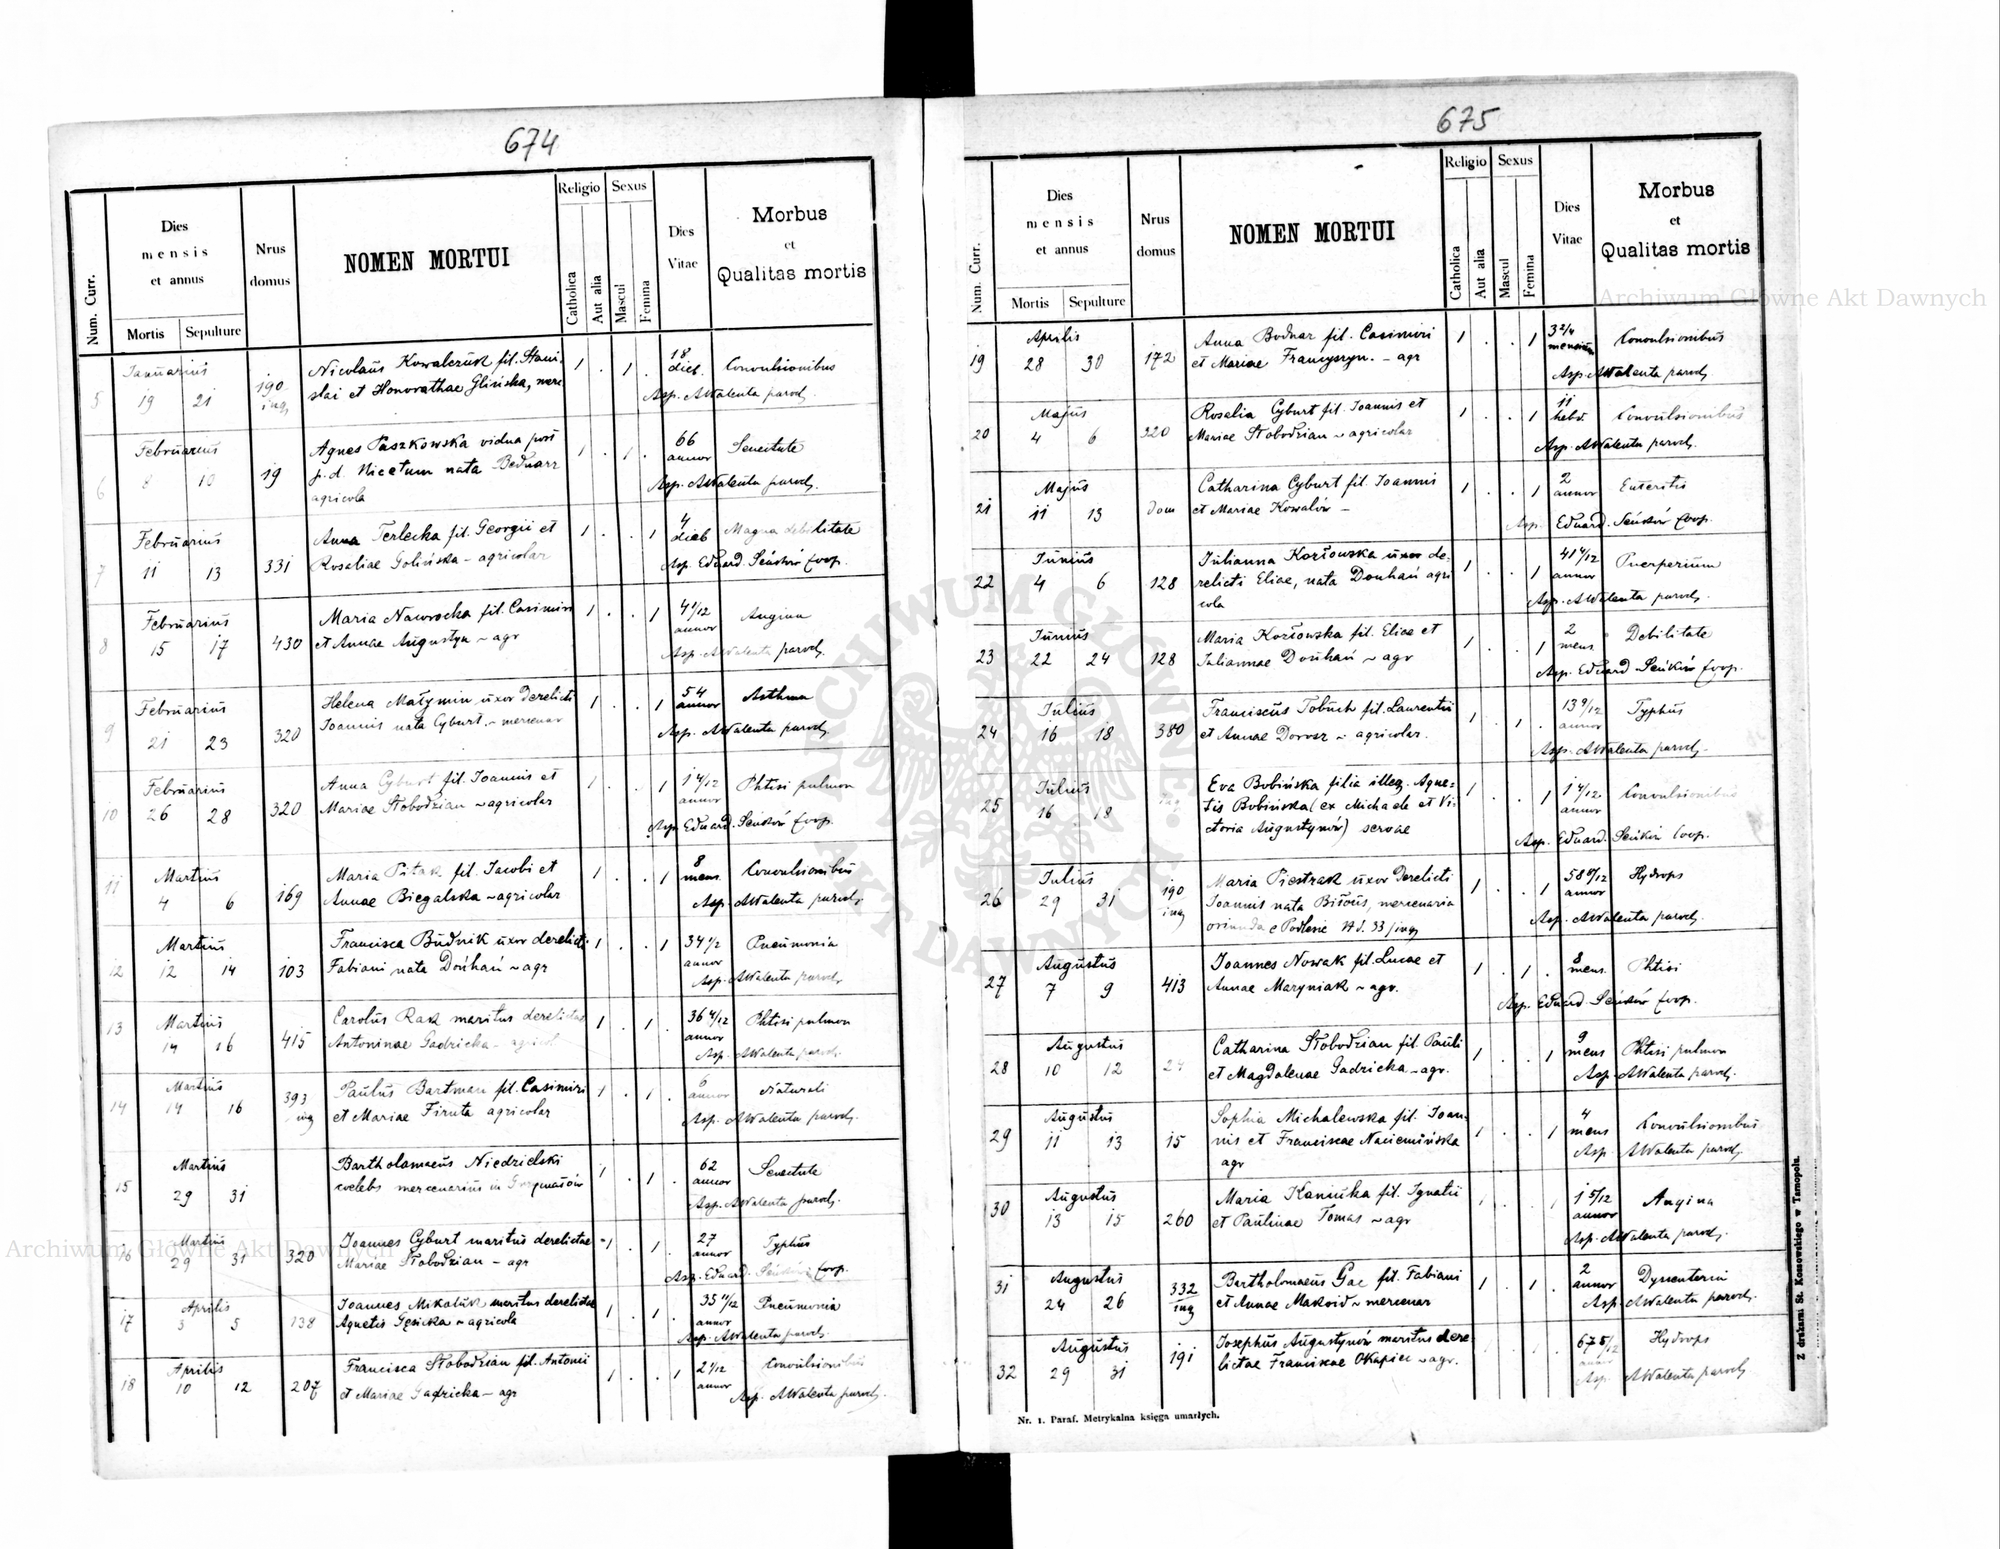 674
Num. Curr.
Dies
mensis
et annus
Mortis
Sepulture
Nrus
domus
NOMEN MORTUI
Religio
Catholica
Aut alia
Sexus
Mascul
Femina
Dies
Vitae
Morbus
et
Qualitas mortis
5 Januarius 19 21 190 inq
Nicolaus Kowalczuk fil. Stani-
slai et Honorathae Glińska, merc
1 . 1 . 18 dies. Convulsionibus
Asp. AWalenta paroch.
6 Februarius 8 10 19
Agnes Paszkowska vidua post
p. d. Nicetum nata Bednarz
agricola
1 . 1 . 66 annor Senectute
Asp. AWalenta paroch.
7 Februarius 11 13 331
Anna Terlecka fil. Georgii et
Rosaliae Golińska - agricolar
1 . . 1 4 dieb Magna debilitate
Asp. Eduard. Seńków Coop.
8 Februarius 15 17 430
Maria Nawrocka fil. Casimiri
et Annae Augustyn ~ agr
1 . . 1 4 1/12 annor Angina
Asp. AWalenta paroch.
9 Februarius 21 23 320
Helena Małymin uxor derelicti
Joannis nata Cyburt. ~ mercenar
1 . . 1 54 annor Asthma
Asp. AWalenta paroch.
10 Februarius 26 28 320
Anna Cyburt fil. Joannis et
Mariae Słobodzian ~ agricolar
1 . . 1 1 4/12 annor Phtisi pulmon
Asp. Eduard. Seńków Coop.
11 Martius 4 6 169
Maria Pitak fil. Jacobi et
Annae Biegalska ~ agricolar
1 . . 1 8 mens. Convulsionibus
Asp. AWalenta paroch.
12 Martius 12 14 103
Francisca Budnik uxor derelicti
Fabiani nata Dońhań ~ agr
1 . . 1 34 1/2 annor Pneumonia
Asp. AWalenta paroch.
13 Martius 14 16 415
Carolus Rak maritus derelictae
Antoninae Gadzicka - agricol
1 . 1 . 36 4/12 annor Phtisi pulmon
Asp. AWalenta paroch.
14 Martius 14 16 393 inq
Paulus Bartman fil. Casimiri
et Mariae Firuta agricolar
1 . 1 . 6 annor Naturali
Asp. AWalenta paroch.
15 Martius 29 31
Bartholomaeus Niedzielski
coelebs mercenarius in
1 . 1 . 62 annor Senectute
Asp. AWalenta paroch.
16 Martius 29 31 320
Joannes Cyburt maritus derelictae
Mariae Słobodzian - agr
1 . 1 . 27 annor Typhus
Asp. Eduard. Seńków Coop.
17 Aprilis 3 5 138
Joannes Mikaluk maritus derelictae
Agnetis Gęsicka ~ agricola
1 . 1 . 35 11/12 annor Pneumonia
Asp. AWalenta paroch.
18 Aprilis 10 12 207
Francisca Słobodzian fil. Antonii
et Mariae Gadzicka - agr
1 . . 1 2 1/12 annor Convulsionibus
Asp. AWalenta paroch.
675
Num. Curr.
Dies
mensis
et annus
Mortis
Sepulture
Nrus
domus
NOMEN MORTUI
Religio
Catholica
Aut alia
Sexus
Mascul
Femina
Dies
Vitae
Morbus
et
Qualitas mortis
19 Aprilis 28 30 172
Anna Bodnar fil. Casimiri
et Mariae Franyszyn. - agr
1 . . 1 3 2/4 mensium Convulsionibus
Asp. AWalenta paroch.
20 Majus 4 6 320
Rosalia Cyburt fil. Joannis et
Mariae Słobodzian ~ agricolar
1 . . 1 11 hebd. Convulsionibus
Asp. AWalenta paroch.
21 Majus 11 13 dom
Catharina Cyburt fil. Joannis
et Mariae Kowalów -
1 . . 1 2 annor Enteritis
Asp. Eduard. Seńków Coop.
22 Junius 4 6 128
Julianna Kozłowska uxor de-
relicti Eliae, nata Donhań agri
cola
1 . . 1 41 4/12 annor Puerperium
Asp. AWalenta paroch.
23 Junius 22 24 128
Maria Kozłowska fil. Eliae et
Juliannae Dońhań ~ agr
1 . . 1 2 mens Debilitate
Asp. Eduard Seńków Coop.
24 Julius 16 18 380
Franciscus Tobuch fil. Laurentii
et Annae Dorosz ~ agricolar.
1 . 1 . 13 9/12 annor Typhus
Asp. AWalenta paroch.
25 Julius 16 18 inq
Eva Bobińska filia illeg. Agne-
tis Bobińska (ex Michaele et Vi-
ctoria Augustynów) servae
1 . . 1 1 4/12 annor Convulsionibus
Asp. Eduard. Seńków Coop.
26 Julius 29 31 190 inq
Maria Piestrak uxor derelicti
Joannis nata Biłous, mercenaria
oriunda e Podlesie N d. 33 jinq
1 . . 1 58 8/12 annor Hydrops
Asp. AWalenta paroch.
27 Augustus 7 9 413
Joannes Nowak fil. Lucae et
Annae Maryniak ~ agr.
1 . 1 . 8 mens. Phtisi
Asp. Eduard. Seńków Coop.
28 Augustus 10 12 24
Catharina Słobodzian fil. Pauli
et Magdalenae Gadzicka ~ agr.
1 . . 1 9 mens Phtisi pulmon
Asp. AWalenta paroch.
29 Augustus 11 13 15
Sophia Michalewska fil. Joan-
nis et Franciscae Naciemińska
agr
1 . . 1 4 mens Convulsionibus
Asp. AWalenta paroch.
30 Augustus 13 15 260
Maria Kaniuka fil. Ignatii
et Paulinae Tomas ~ agr
1 . . 1 1 5/12 annor Angina
Asp. AWalenta paroch.
31 Augustus 24 26 332 inq
Bartholomaeus Gac fil. Fabiani
et Annae Makoid ~ mercenar
1 . 1 . 2 annor Dyssenteria
Asp. AWalenta paroch.
32 Augustus 29 31 191
Josephus Augustynów maritus dere-
lictae Franciscae Okapiec ~ agr.
1 . 1 . 67 5/12 annor Hydrops
Asp. AWalenta paroch.
Nr. 1. Paraf. Metrykalna księga umarłych.
Z drukarni St. Kossowskiego w Tarnopolu.
Archiwum Główne Akt Dawnych
Archiwum Główne Akt Dawnych
ARCHIWUM GŁÓWNE • AKT DAWNYCH •